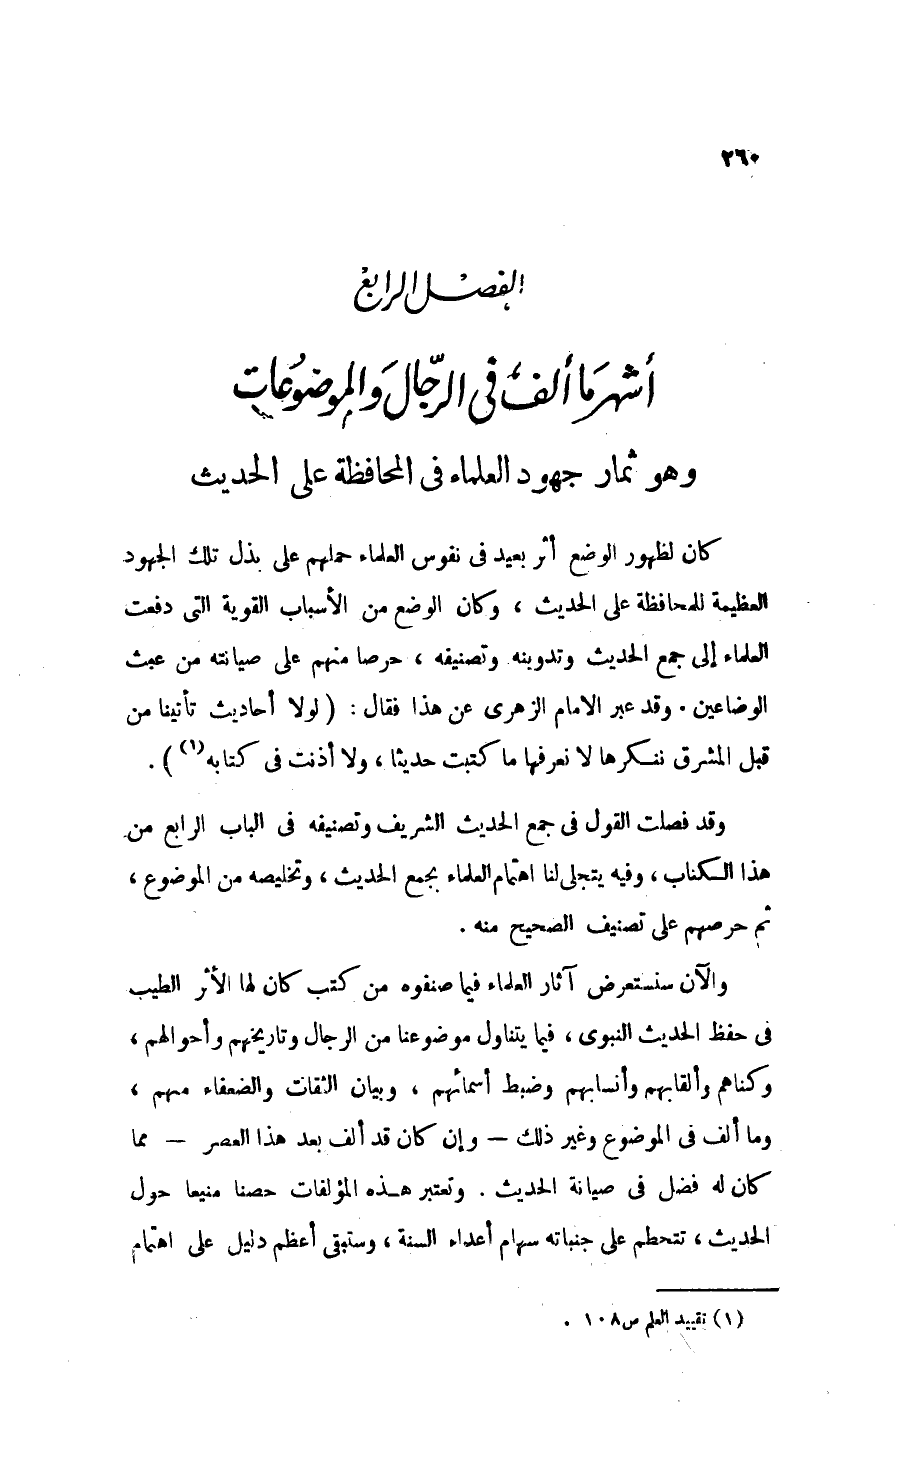 ٢٦٠
الفصل الرابع
أشهر ما ألف في الرجال والموضوعات
وهو ثمار جهود العلماء فى المحافظة على الحديث
كان لظهور الوضع أثر بعيد فى نفوس العلماء حملهم على بذل تلك الجهود
العظيمة للمحافظة على الحديث ، وكان الوضع من الأسباب القوية التى دفعت
العلماء إلى جمع الحديث وتدوينه وتصنيفه ، حرصا منهم على صيانته من عبث
الوضاعين . وقد عبر الامام الزهرى عن هذا فقال : ( لولا أحاديث تأتينا من
قبل المشرق ننكرها لا نعرفها ما كتبت حديثا ، ولا أذنت فى كتابه (١) ) .
وقد فصلت القول فى جمع الحديث الشريف وتصنيفه فى الباب الرابع من
هذا الكتاب ، وفيه يتجلى لنا اهتمام العلماء بجمع الحديث ، وتخليصه من الموضوع ،
ثم حرصهم على تصنيف الصحيح منه .
والآن سنستعرض آثار العلماء فيما صنفوه من كتب كان لها الأثر الطيب
فى حفظ الحديث النبوى ، فيما يتناول موضوعنا من الرجال وتاريخهم وأحوالهم ،
وكناهم وألقابهم وأنسابهم وضبط أسمائهم ، وبيان الثقات والضعفاء منهم ،
وما ألف فى الموضوع وغير ذلك – وإن كان قد ألف بعد هذا العصر – مما
كان له فضل فى صيانة الحديث . وتعتبر هذه المؤلفات حصنا منيعا حول
الحديث ، تتحطم على جنباته سهام أعداء السنة ، وستبقى أعظم دليل على اهتمام
(١) تقييد العلم ص ١٠٨ .